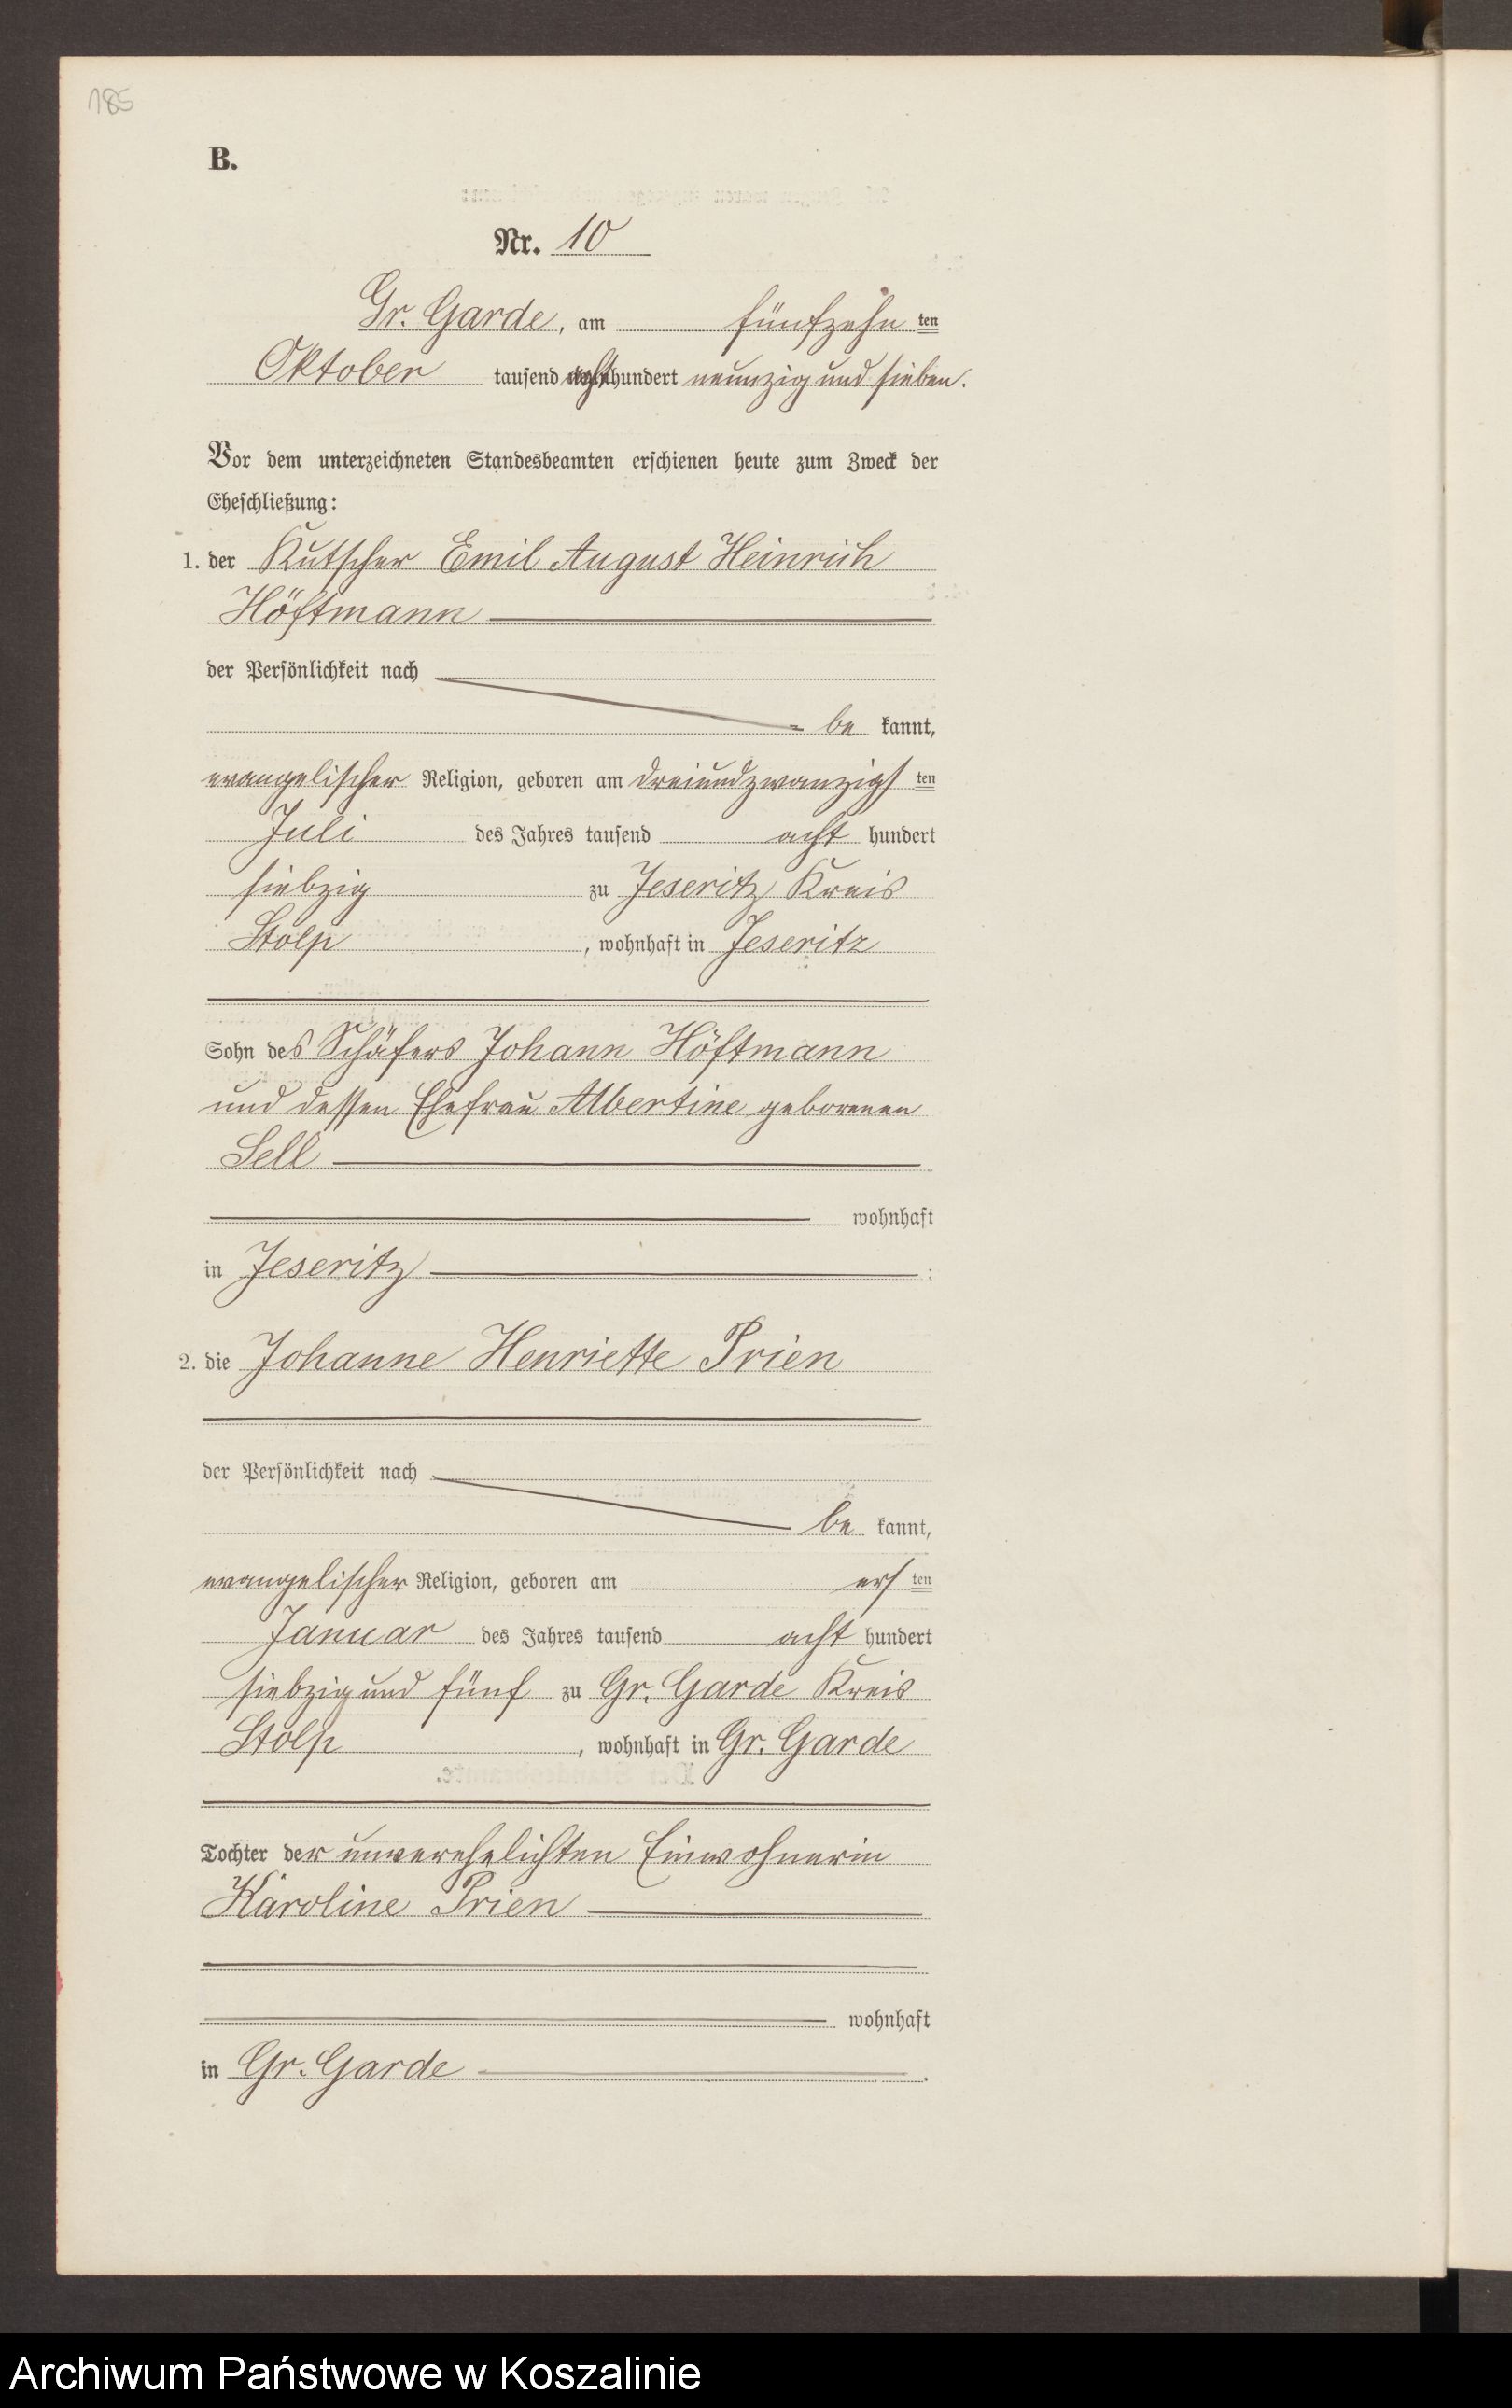 185
B.
Nr. 10
Gr. Garde, am fünfzehn ten
Oktober tausend achthundert neunzig und sieben.
Vor dem unterzeichneten Standesbeamten erschienen heute zum Zweck der
Eheschließung:
1. der Kutscher Emil August Heinrich
Höftmann
der Persönlichkeit nach
be kannt,
evangelischer Religion, geboren am dreiundzwanzigs ten
Juli des Jahres tausend acht hundert
siebzig zu Jeseritz Kreis
Stolp, wohnhaft in Jeseritz
Sohn des Schäfers Johann Höftmann
und dessen Ehefrau Albertine geborenen
Sell
wohnhaft
in Jeseritz :
2. die Johanne Henriette Prien
der Persönlichkeit nach
be kannt,
evangelischer Religion, geboren am ers ten
Januar des Jahres tausend acht hundert
siebzig und fünf zu Gr. Garde Kreis
Stolp, wohnhaft in Gr. Garde
Tochter der unverehelichten Einwohnerin
Karoline Prien
wohnhaft
in Gr. Garde.
Archiwum Państwowe w Koszalinie